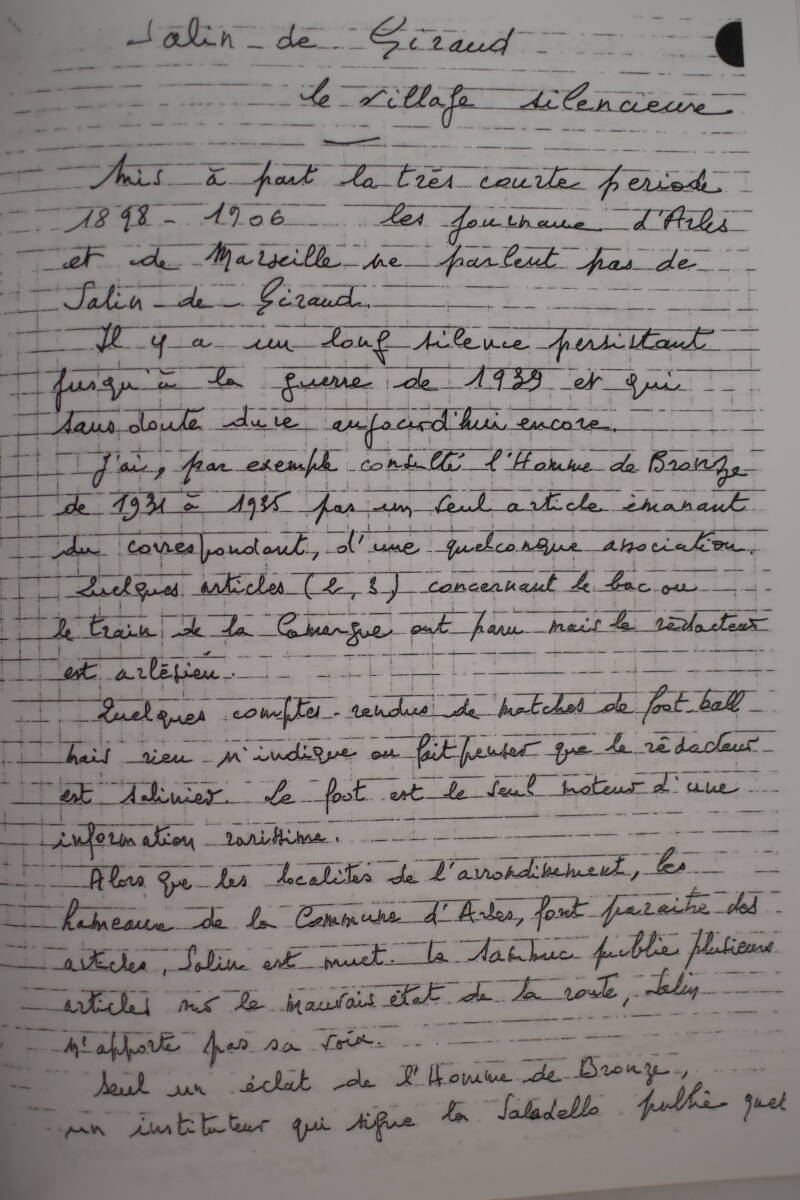 Salin-de Giraud
le village silencieux
Mis à part la très courte periode
1898 - 1906 les journaux d'Arles
et de Marseille ne parlent pas de
Salin-de-Giraud.
Il y a un long silence persistant
jusqu'à la guerre de 1939 et qui
sans doute dure aujourd'hui encore.
J'ai, par exemple consulté l'Homme de Bronze
de 1931 à 1935 pas un seul article émanant
du correspondant, d'une quelconque association.
Quelques articles (2, 3) concernant le bac ou
le train de la Camargue ont paru mais le rédacteur
est arlésien.
Quelques comptes-rendus de matches de foot-ball
mais rien n'indique ou fait penser que le rédacteur
est salinier. Le foot est le seul moteur d'une
information rarissime.
Alors que les localités de l'arrondissement, les
hameaux de la Commune d'Arles, font paraitre des
articles, Salin est muet. Le Sambuc publie plusieurs
articles sur le mauvais état de la route, Salin
n'apporte pas sa voix.
Seul un éclat de l'Homme de Bronze,
un instituteur qui signe la Saladello publie quel